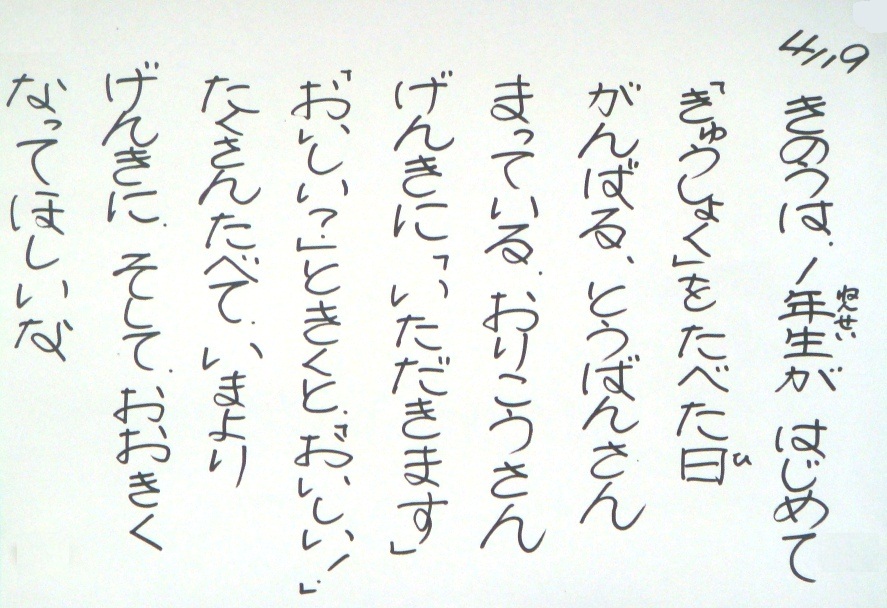 4/19
きのうは、1年生が はじめて
ねんせい
「きゅうしょく」を たべた日
ひ
がんばる、とうばんさん
まっている、おりこうさん
げんきに「いただきます」
「おいしい？」ときくと、「おいしい！」
たくさん たべて、いまより
げんきに、そして、おおきく
なってほしいな